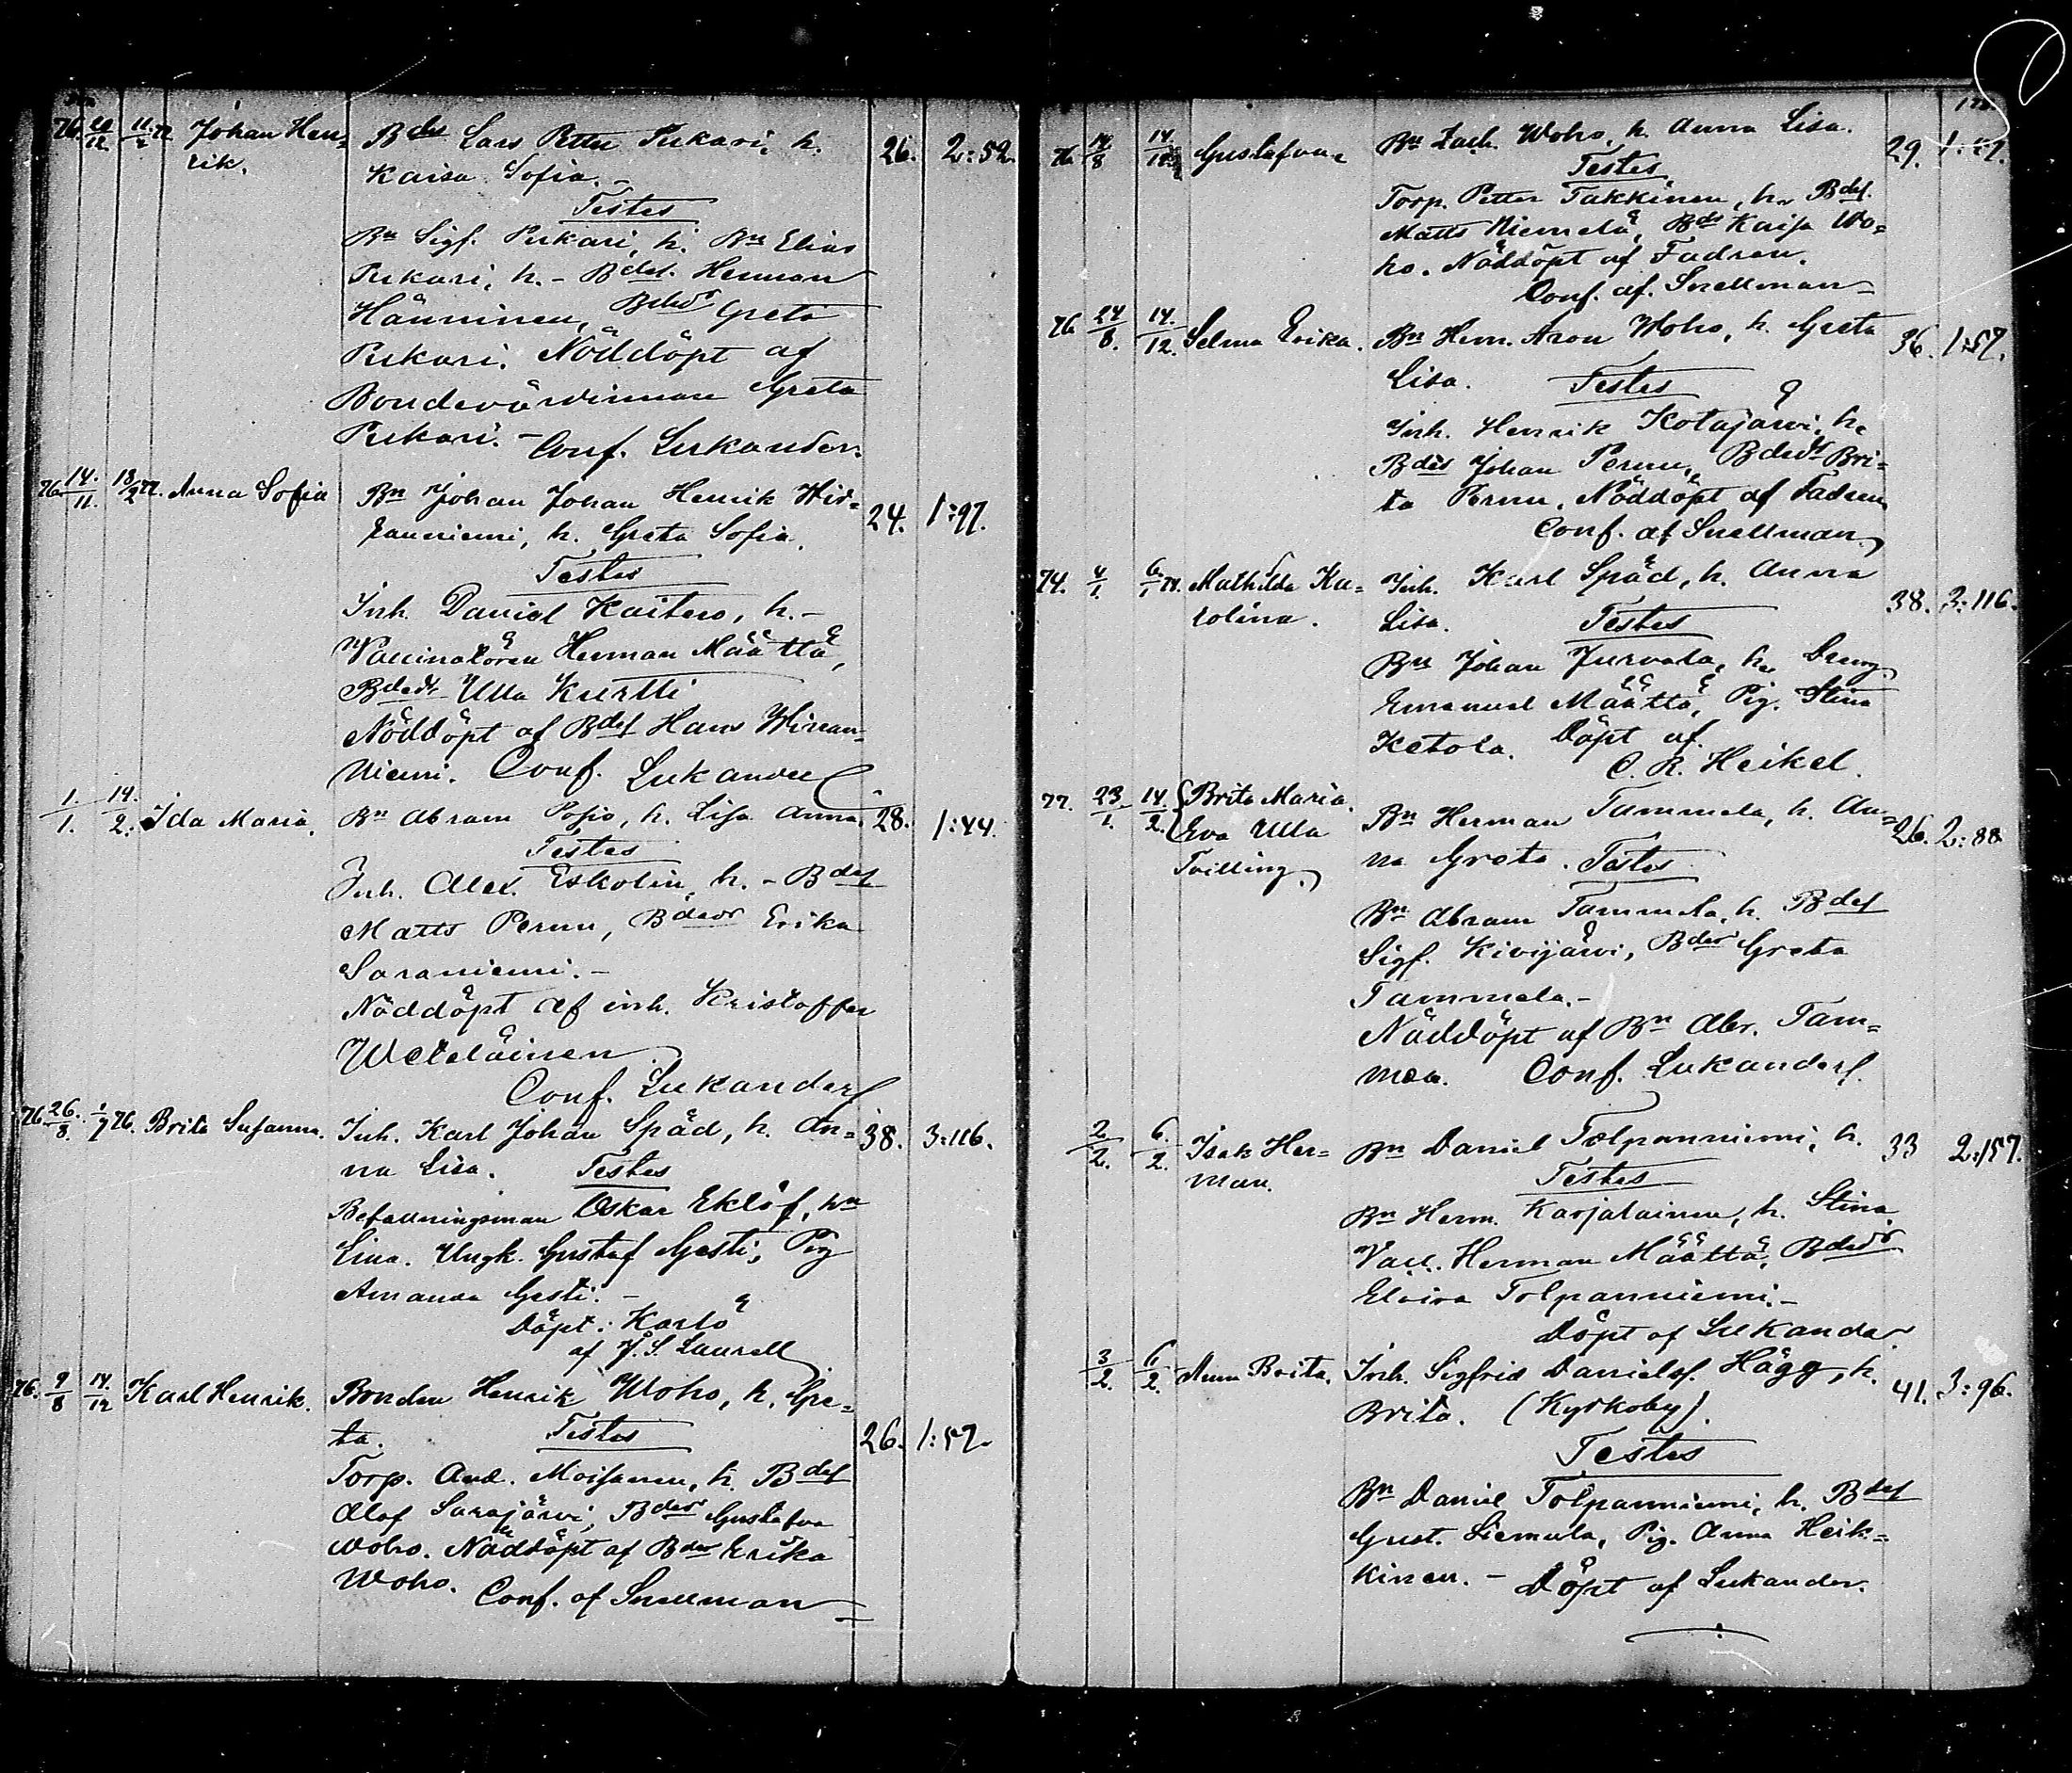 76. 20/12. 11/2 77. Johan Hen= Bdes Lars Petter Pukari, h. 26. 2:52.
rik. Kaisa Sofia. –
Testes
Bn Sigf. Pukari, h. Bn Elias
Pukari, h. – Bdes. Herman
Hänninen, Bdedr Greta
Pukari. Nöddöpt af
Bondevärdinnan Greta
Pukari. – Conf. Lukander.
76 14./11. 13/2 77. Anna Sofia Bn Johan Johan Henrik Wir= 24. 1:97.
kanniemi, h. Greta Sofia.
Testes
Inh. Daniel Kaitero, h. –
Vaccinatören Herman Määttä,
Bdedr Ulla Kurtti
Nöddöpt af Bdes Hans Wirkan=
niemi. Conf. Lukander
1./1. 14./2. Ida Maria. Bn Abram Posio, h. Lisa Anna. 28. 1:44.
Testes
Inh. Alex. Eskolin, h. – Bdes
Matts Pernu, Bdedr Erika
Saraniemi. –
Nöddöpt af inh. Kristoffer
Weteläinen
Conf. Lukander
76 26./8. 1/9 76. Brita Susanna. Inh. Karl Johan Späd, h. An= 38. 3:116.
na Lisa. Testes
Befallningsman Oskar Eklöf, hn
Lina. Ungk. Gustaf Gesti, Pig
Amanda Gesti. –
Döpt i Karlö
af J. S. Laurell
76. 9/8 14./12 Karl Henrik. Bonden Henrik Woho, h. Gre=
ta. Testes 26. 1:57.
Torp. And. Moisanen, h. Bdes
Olof Sarajärvi, Bdedr Gustafva
Woho. Nöddöpt af Bdedr Erika
Woho. Conf. af Snellman
76 14./8 14./12 Gustafva Bn Zach. Woho, h. Anna Lisa. 29. 1:57.
Testes
Torp. Petter Takkinen, h. Bdes.
Matts Niemelä, Bdr Kaisa Wo=
ho. Nöddöpt af Fadren.
Conf. af. Snellman
76 24/8. 14./12. Selma Erika. Bn Herm. Aron Woho, h. Greta 36. 1:57.
Lisa. Testes
Inh. Henrik Kotajärvi, h.
Bdes Johan Pernu, Bdedr Bri=
ta Pernu. Nöddöpt af Fadren
Conf. af Snellman
74. 4/1. 6/1 74. Mathilda Ka= Inh. Karl Späd, h. Anna 38. 3:116.
rolina. Lisa. Testes
Bn Johan Jurvala, h. Dreng
Emanuel Määttä, Pig. Stina
Ketola. Döpt af.
C. R. Heikel.
77. 23./1. 14./2. Brita Maria.
Eva Ulla Bn Herman Tammela, h. An= 26. 2:88
Tvilling. na Greta. Testes
Bn Abram Tammela, h. Bdes
Sigf. Kivijärvi, Bdedr Greta
Tammela. –
Nöddöpt af Bn Abr. Tam=
mela. Conf. Lukander.
2/2. 6./2. Isak Her= Bn Daniel Tolpanniemi, h. 33 2:157.
man. Testes
Bn Herm. Karjalainen, h. Stina
Vacc. Herman Määttä, Bdedr
Elvira Tolpanniemi. –
Döpt af Lukander
3/2. 6/2. Anna Brita. Inh. Sigfrid Danielsf. Hägg, h. 41. 3:96.
Brita. (Kyrkoby).
Testes
Bn Daniel Tolpanniemi, h. Bdes
Gust. Siemula, Pig. Anna Heik=
kinen. – Döpt af Lukander.